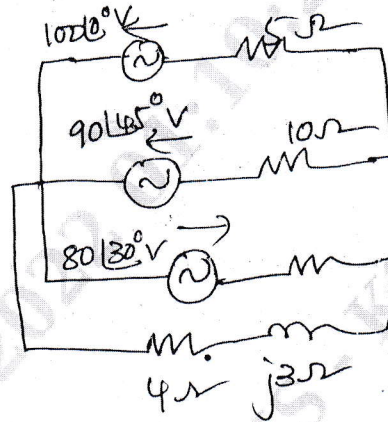 100∠0° V
5 Ω
90∠45° V
10 Ω
80∠30° V
4 Ω
j3 Ω